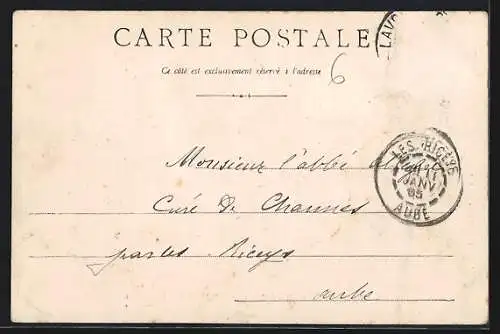 CARTE POSTALE
Ce côté est exclusivement réservé à l'adresse
6
LAVO
LES RICEYS
JANV
05
AUBE
Monsieur l'abbé
Curé de Channes
par les Riceys
aube